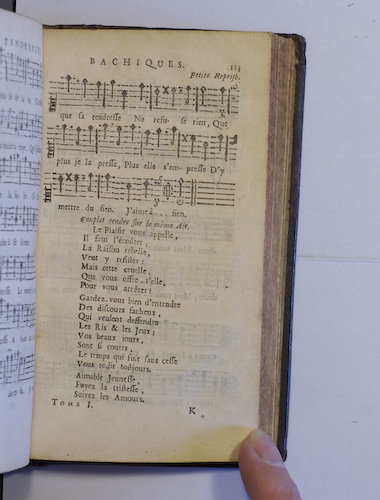 BACHIQUES.
Petite Reprise.
que sa tendresse Ne refuse rien, Que
plus je la presse, Plus elle s'em-presse D'y
mettre du sien. J'aime à... sien.
Couplet tendre sur le même Air.
Le Plaisir vous appelle,
Il faut l'écouter;
La Raison rebelle,
Veut y résister:
Mais cette cruelle,
Que vous offre-t'elle,
Pour vous arrêter?
Gardez-vous bien d'entendre
Des discours facheux,
Qui veulent deffendre
Les Ris & les Jeux;
Vos beaux jours,
Sont si courts,
Le temps qui fuit sans cesse
Vous redit toûjours.
Aimable Jeunesse,
Fuyez la tristesse,
Suivez les Amours.
TOME I. K